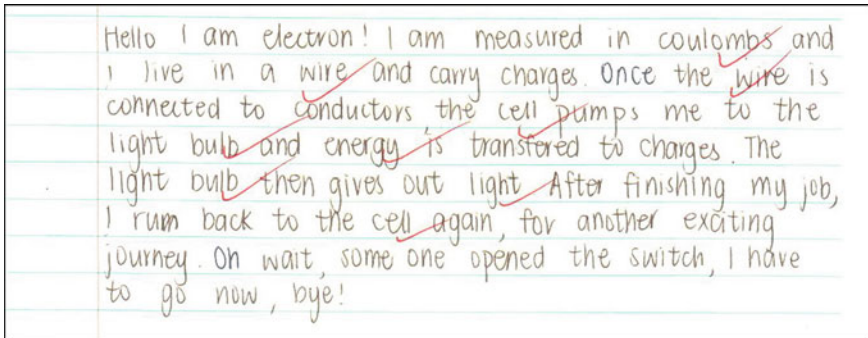 Hello I am electron! I am measured in coulombs and
I live in a wire and carry charges. Once the wire is
connected to conductors the cell pumps me to the
light bulb and energy is transfered to charges. The
light bulb then gives out light. After finishing my job,
I rum back to the cell again, for another exciting
journey. Oh wait, some one opened the switch, I have
to go now, bye!